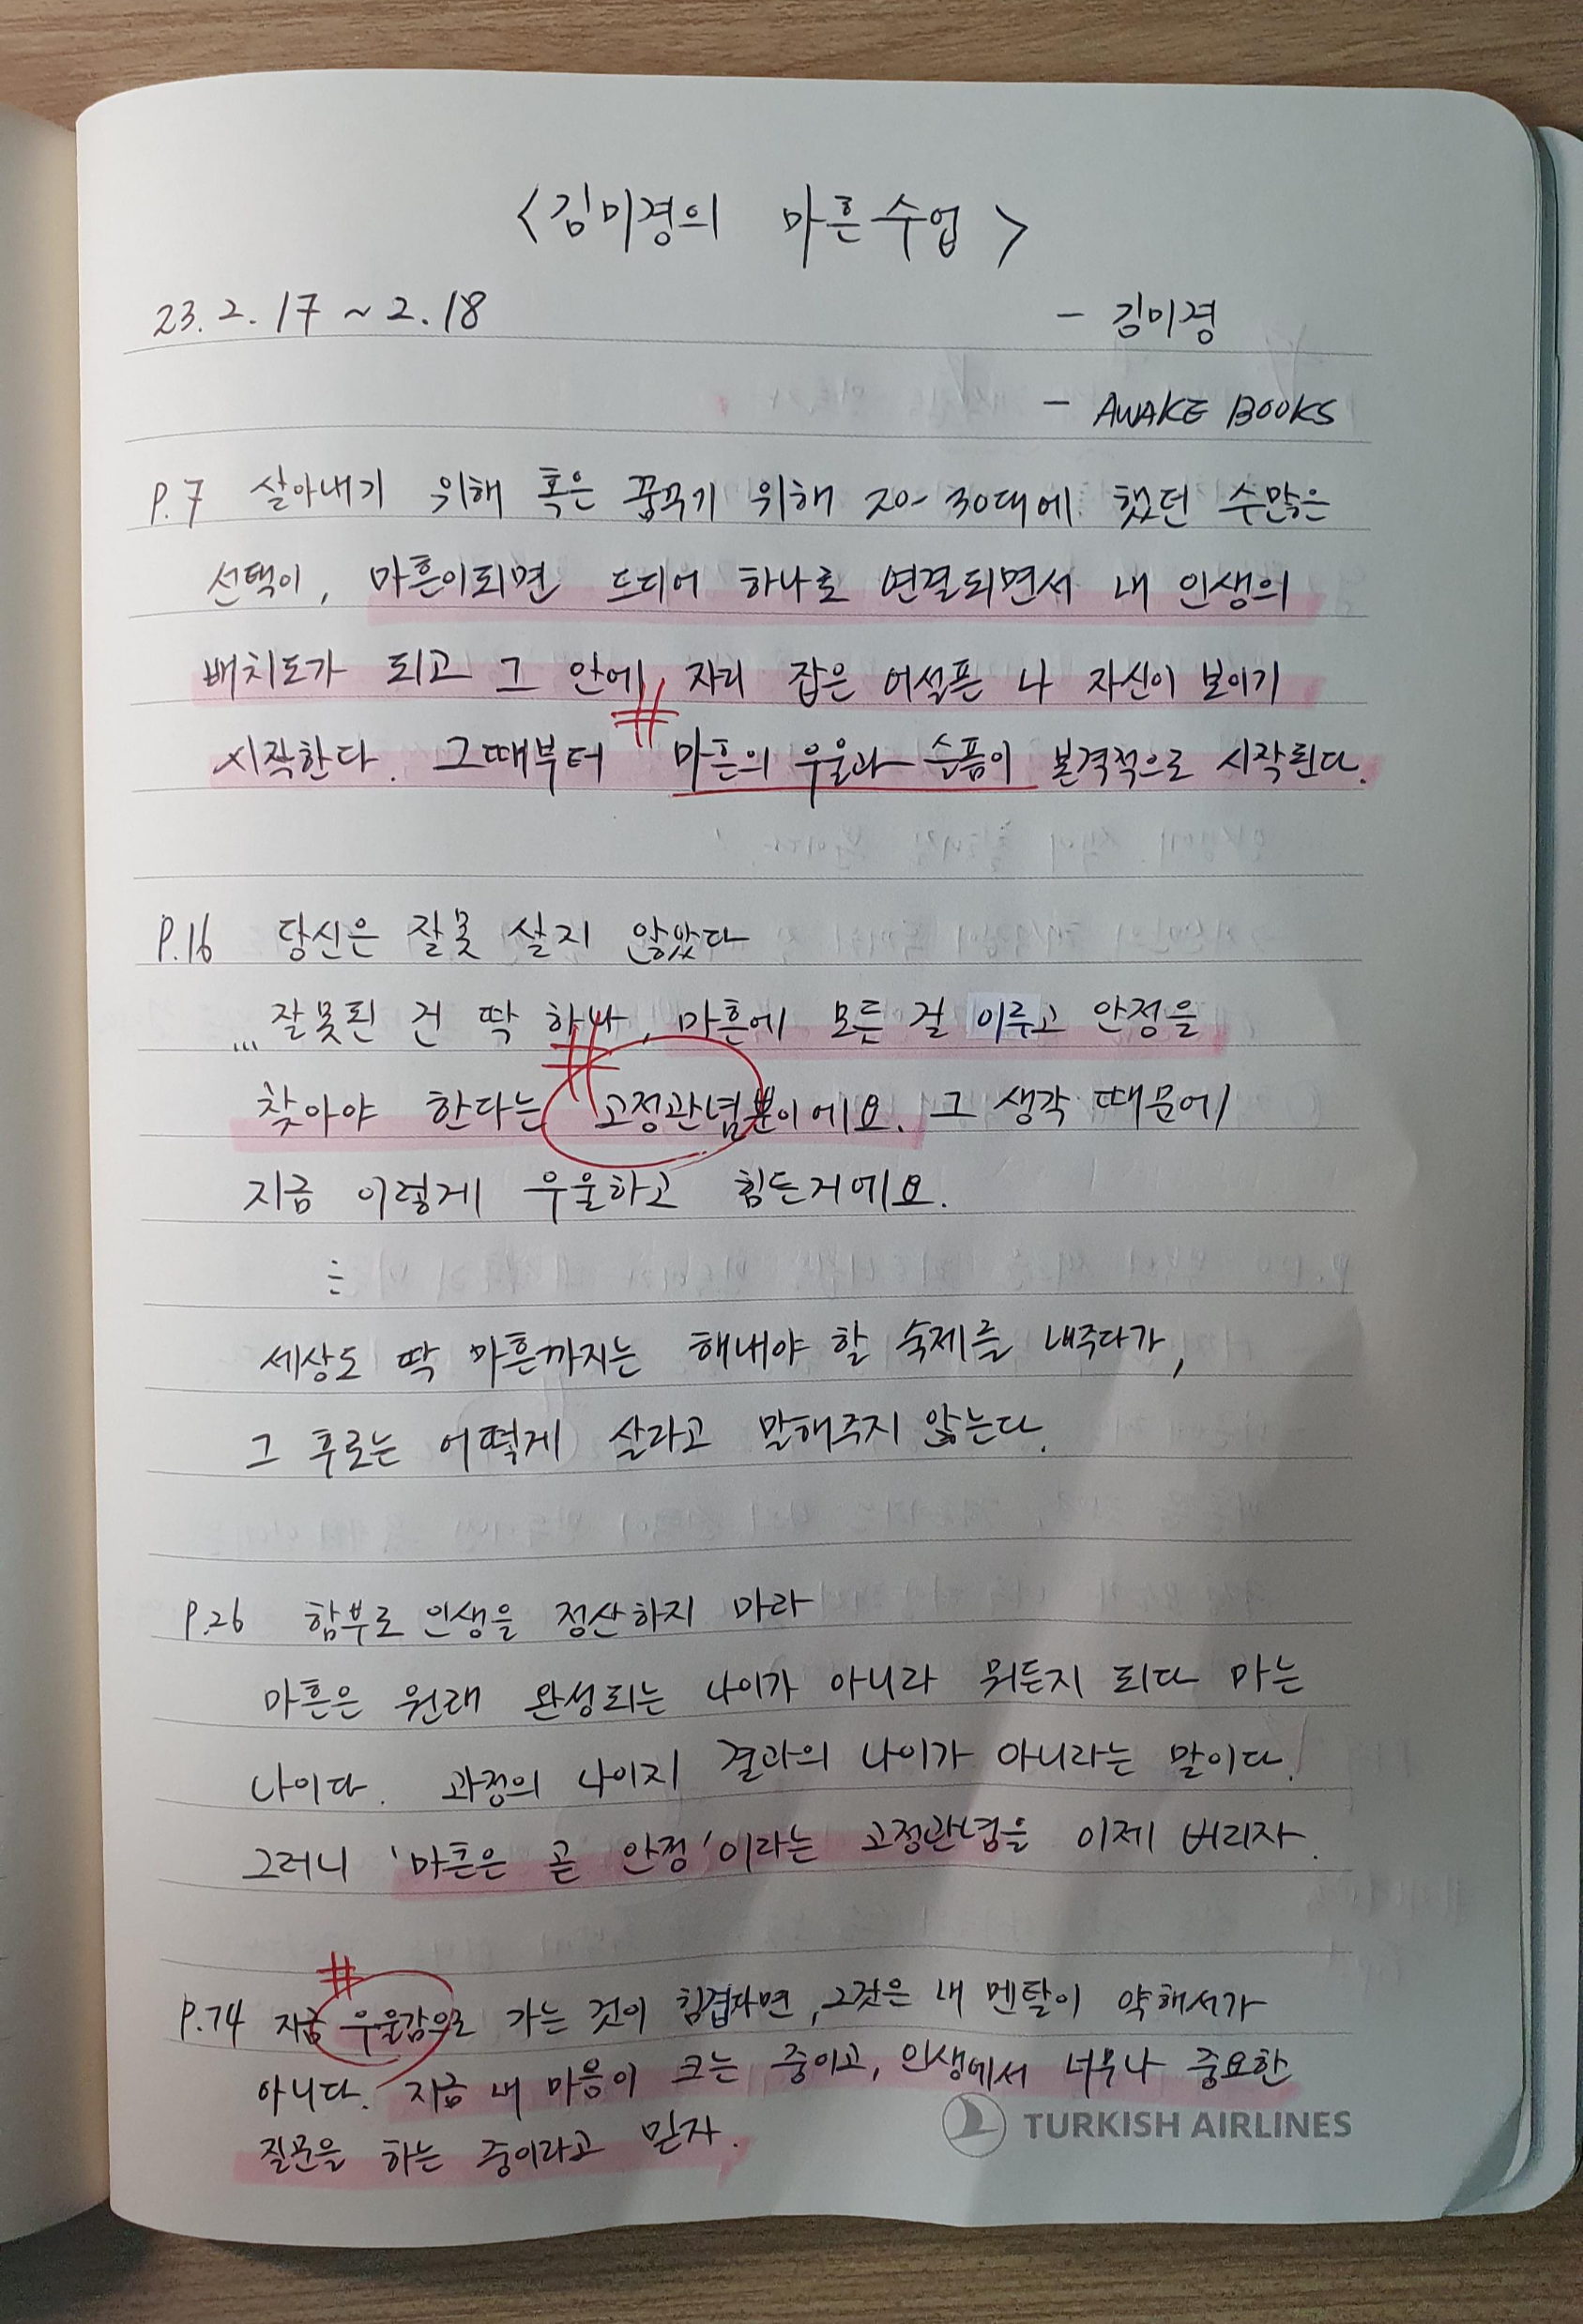 <김미경의 마흔수업>
23.2.17 ~ 2.18
- 김미경
- AWAKE BOOKS
P.7 살아내기 위해 혹은 꿈꾸기 위해 20-30대에 했던 수많은
선택이, 마흔이되면 드디어 하나로 연결되면서 내 인생의
배치도가 되고 그 안에 자리 잡은 어설픈 나 자신이 보이기
시작한다. 그때부터 # 마흔의 우울과 슬픔이 본격적으로 시작된다.
P.16 당신은 잘못 살지 않았다
... 잘못된 건 딱 하나, 마흔에 모든 걸 이루고 안정을
찾아야 한다는 # 고정관념뿐이에요. 그 생각 때문에
지금 이렇게 우울하고 힘든거에요.
⋮
세상도 딱 마흔까지는 해내야 할 숙제를 내주다가,
그 후로는 어떻게 살라고 말해주지 않는다.
P.26 함부로 인생을 정산하지 마라
마흔은 원래 완성되는 나이가 아니라 뭐든지 되다 마는
나이다. 과정의 나이지 결과의 나이가 아니라는 말이다.
그러니 '마흔은 곧 안정'이라는 고정관념을 이제 버리자.
#
P.74 지금 우울감으로 가는 것이 힘겹다면, 그것은 내 멘탈이 약해서가
아니다. 지금 내 마음이 크는 중이고, 인생에서 너무나 중요한
질문을 하는 중이라고 믿자.
TURKISH AIRLINES